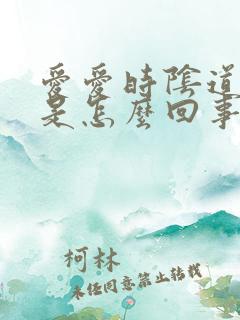 愛愛時陰道
是怎麼回事
柯林
未经同意禁止转载